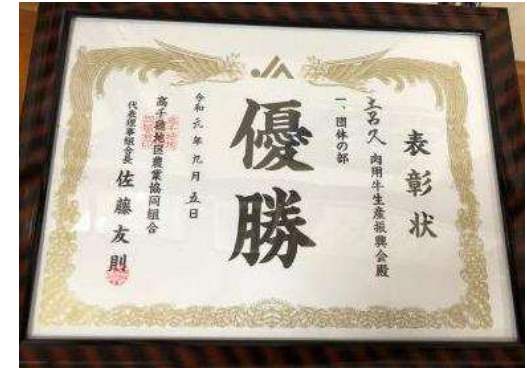 表彰状
土呂久 肉用牛生産振興会殿
一、団体の部
優勝
令和元年九月五日
高千穂地区農業協同組合
代表理事組合長 佐藤友則